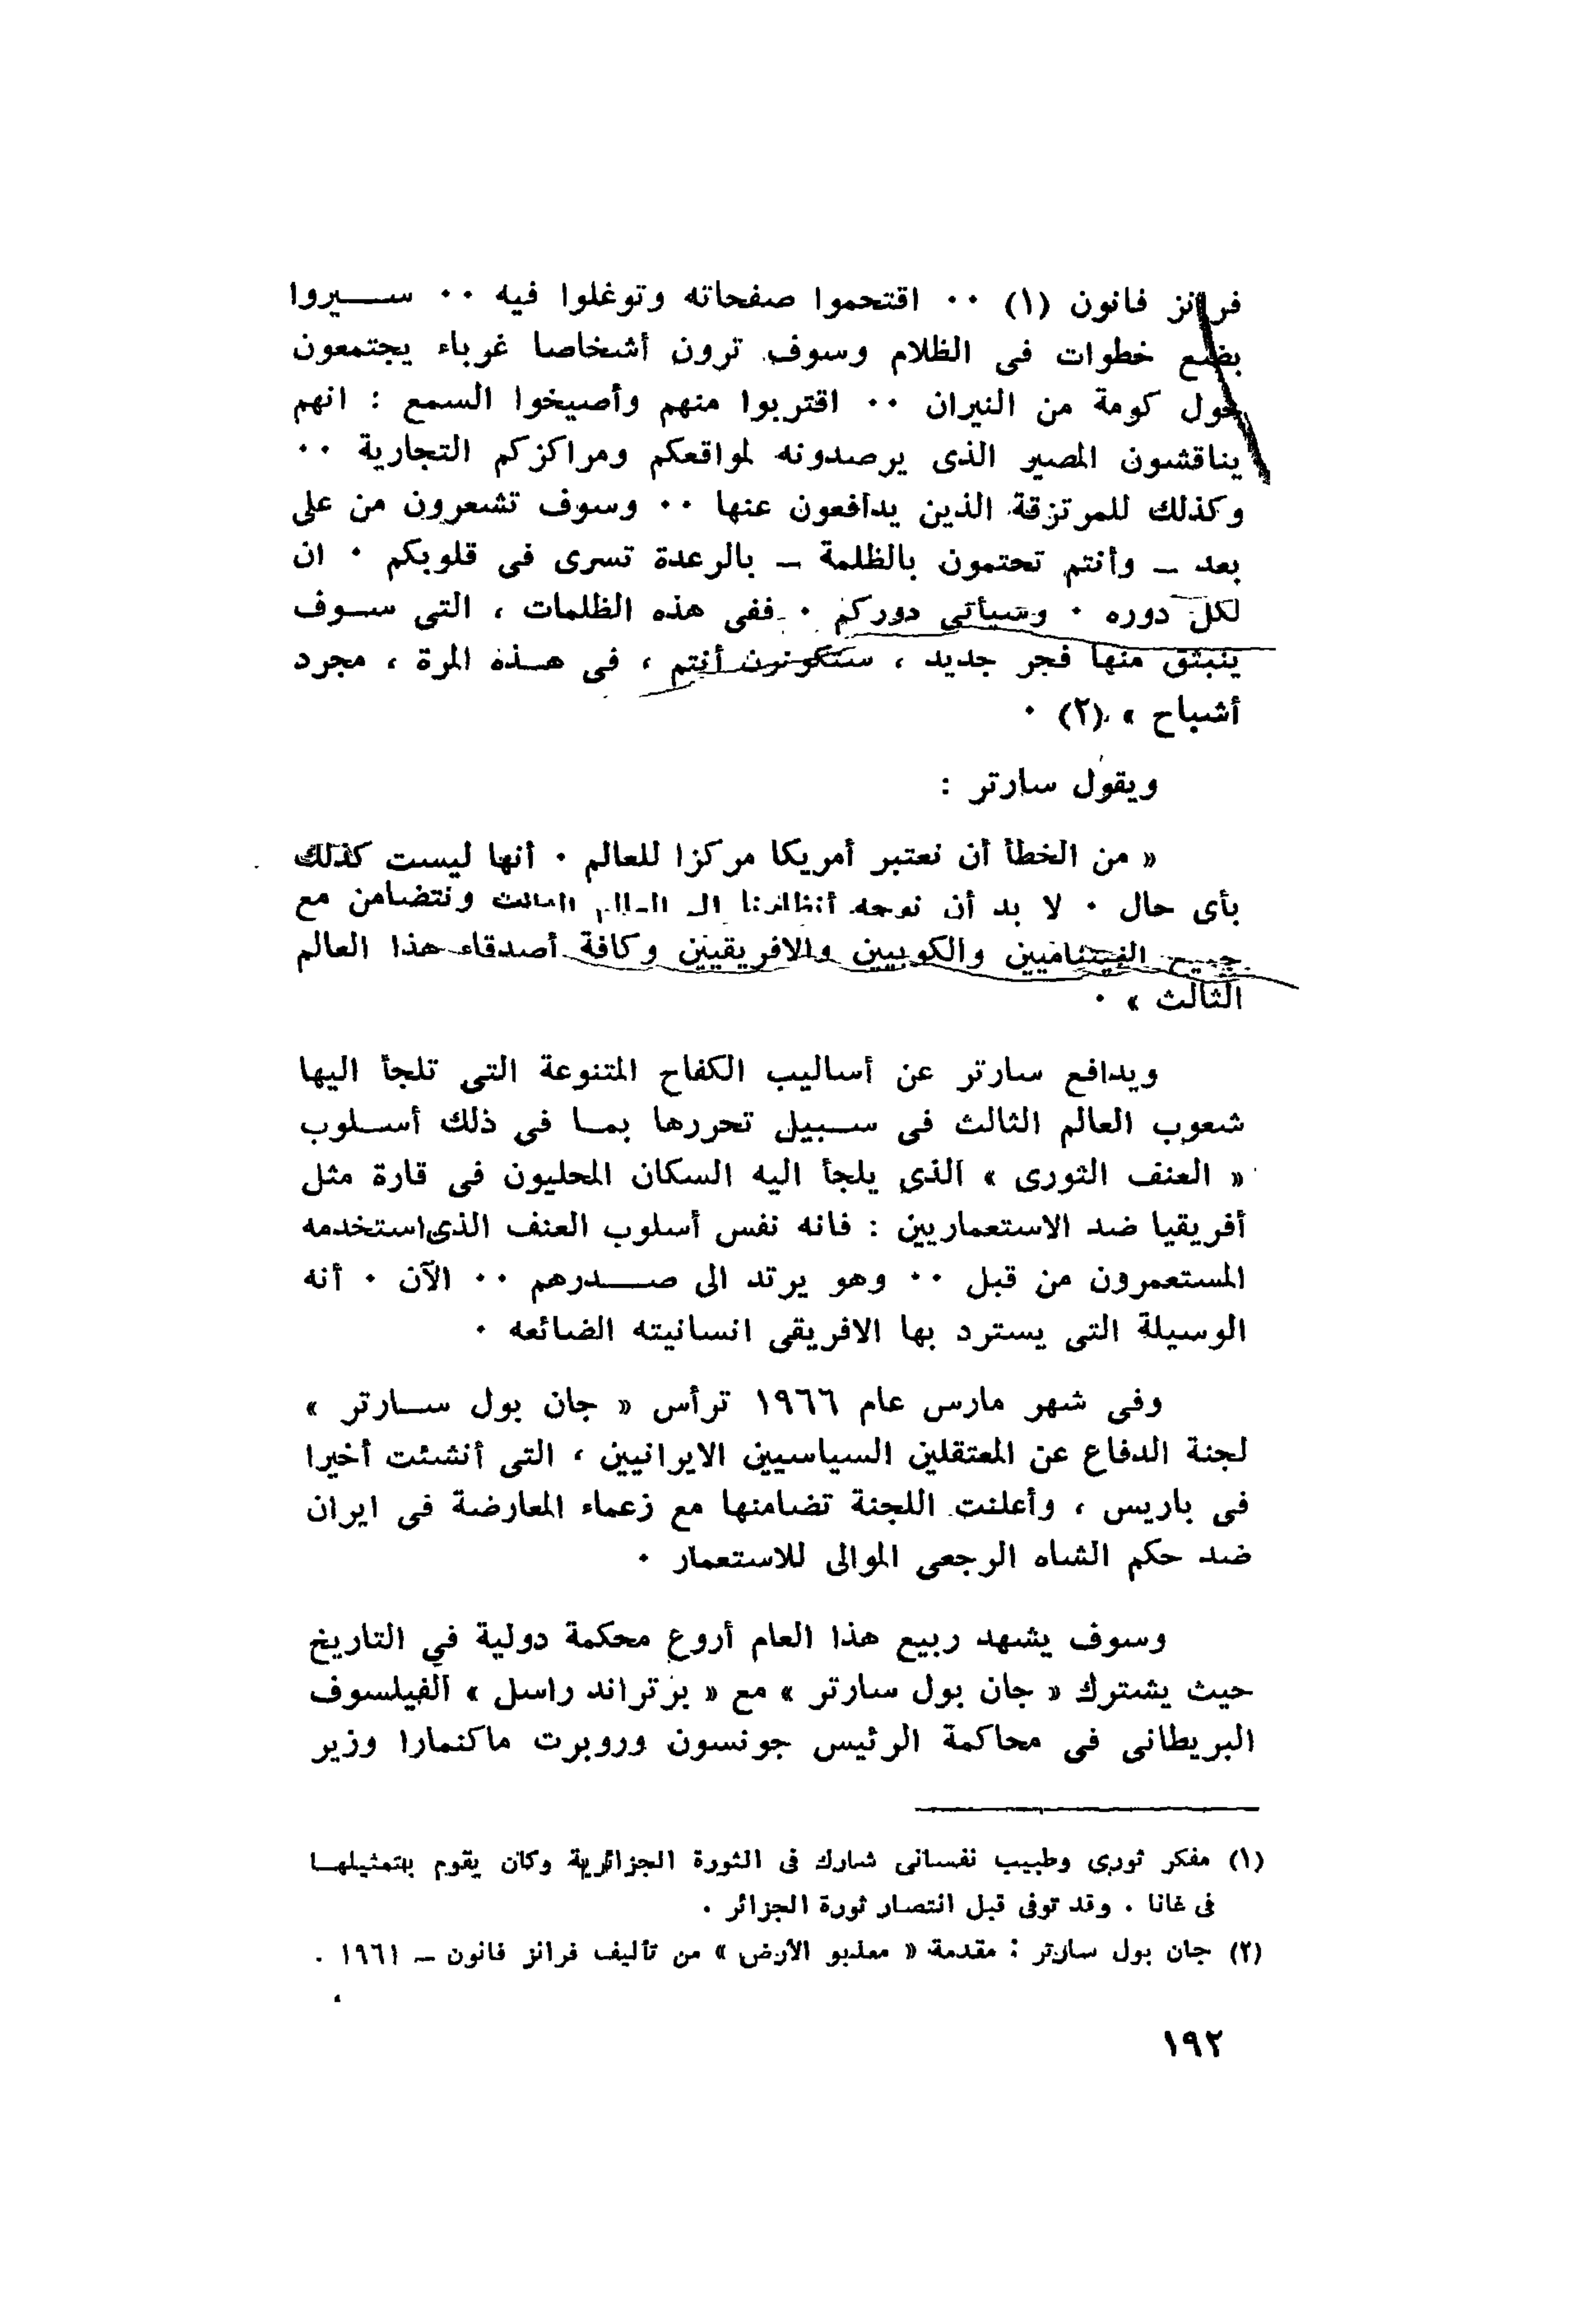 فرانز فانون (١) ٠٠ اقتحموا صفحاته وتوغلوا فيه ٠٠ سيروا
بضع خطوات فى الظلام وسوف ترون أشخاصا غرباء يجتمعون
حول كومة من النيران ٠٠ اقتربوا منهم وأصيخوا السمع : انهم
يناقشون المصير الذى يرصدونه لمواقعكم ومراكزكم التجارية ٠٠
وكذلك للمرتزقة الذين يدافعون عنها ٠٠ وسوف تشعرون من على
بعد ــ وأنتم تحتمون بالظلمة ــ بالرعدة تسرى فى قلوبكم ٠ ان
لكل دوره ٠ وسيأتى دوركم ٠ ففى هذه الظلمات ، التى سوف
ينبثق منها فجر جديد ، ستكونون أنتم ، فى هذه المرة ، مجرد
أشباح » (٢) ٠
ويقول سارتر :
« من الخطأ أن نعتبر أمريكا مركزا للعالم ٠ أنها ليست كذلك
بأى حال ٠ لا بد أن نوجه أنظارنا الى العالم الثالث ونتضامن مع
جميع الفيتناميين والكوبيين والافريقيين وكافة أصدقاء هذا العالم
الثالث » ٠
ويدافع سارتر عن أساليب الكفاح المتنوعة التى تلجأ اليها
شعوب العالم الثالث فى سبيل تحررها بما فى ذلك أسلوب
« العنف الثورى » الذى يلجأ اليه السكان المحليون فى قارة مثل
أفريقيا ضد الاستعماريين : فانه نفس أسلوب العنف الذى استخدمه
المستعمرون من قبل ٠٠ وهو يرتد الى صدرهم ٠٠ الآن ٠ أنه
الوسيلة التى يسترد بها الافريقى انسانيته الضائعه ٠
وفى شهر مارس عام ١٩٦٦ ترأس « جان بول سارتر »
لجنة الدفاع عن المعتقلين السياسيين الايرانيين ، التى أنشئت أخيرا
فى باريس ، وأعلنت اللجنة تضامنها مع زعماء المعارضة فى ايران
ضد حكم الشاه الرجعى الموالى للاستعمار ٠
وسوف يشهد ربيع هذا العام أروع محكمة دولية في التاريخ
حيث يشترك « جان بول سارتر » مع « برتراند راسل » الفيلسوف
البريطانى فى محاكمة الرئيس جونسون وروبرت ماكنمارا وزير
(١) مفكر ثورى وطبيب نفسانى شارك فى الثورة الجزائرية وكان يقوم بتمثيلها
فى غانا . وقد توفى قبل انتصار ثورة الجزائر .
(٢) جان بول سارتر : مقدمة « معذبو الأرض » من تأليف فرانز فانون ــ ١٩٦١ .
١٩٢